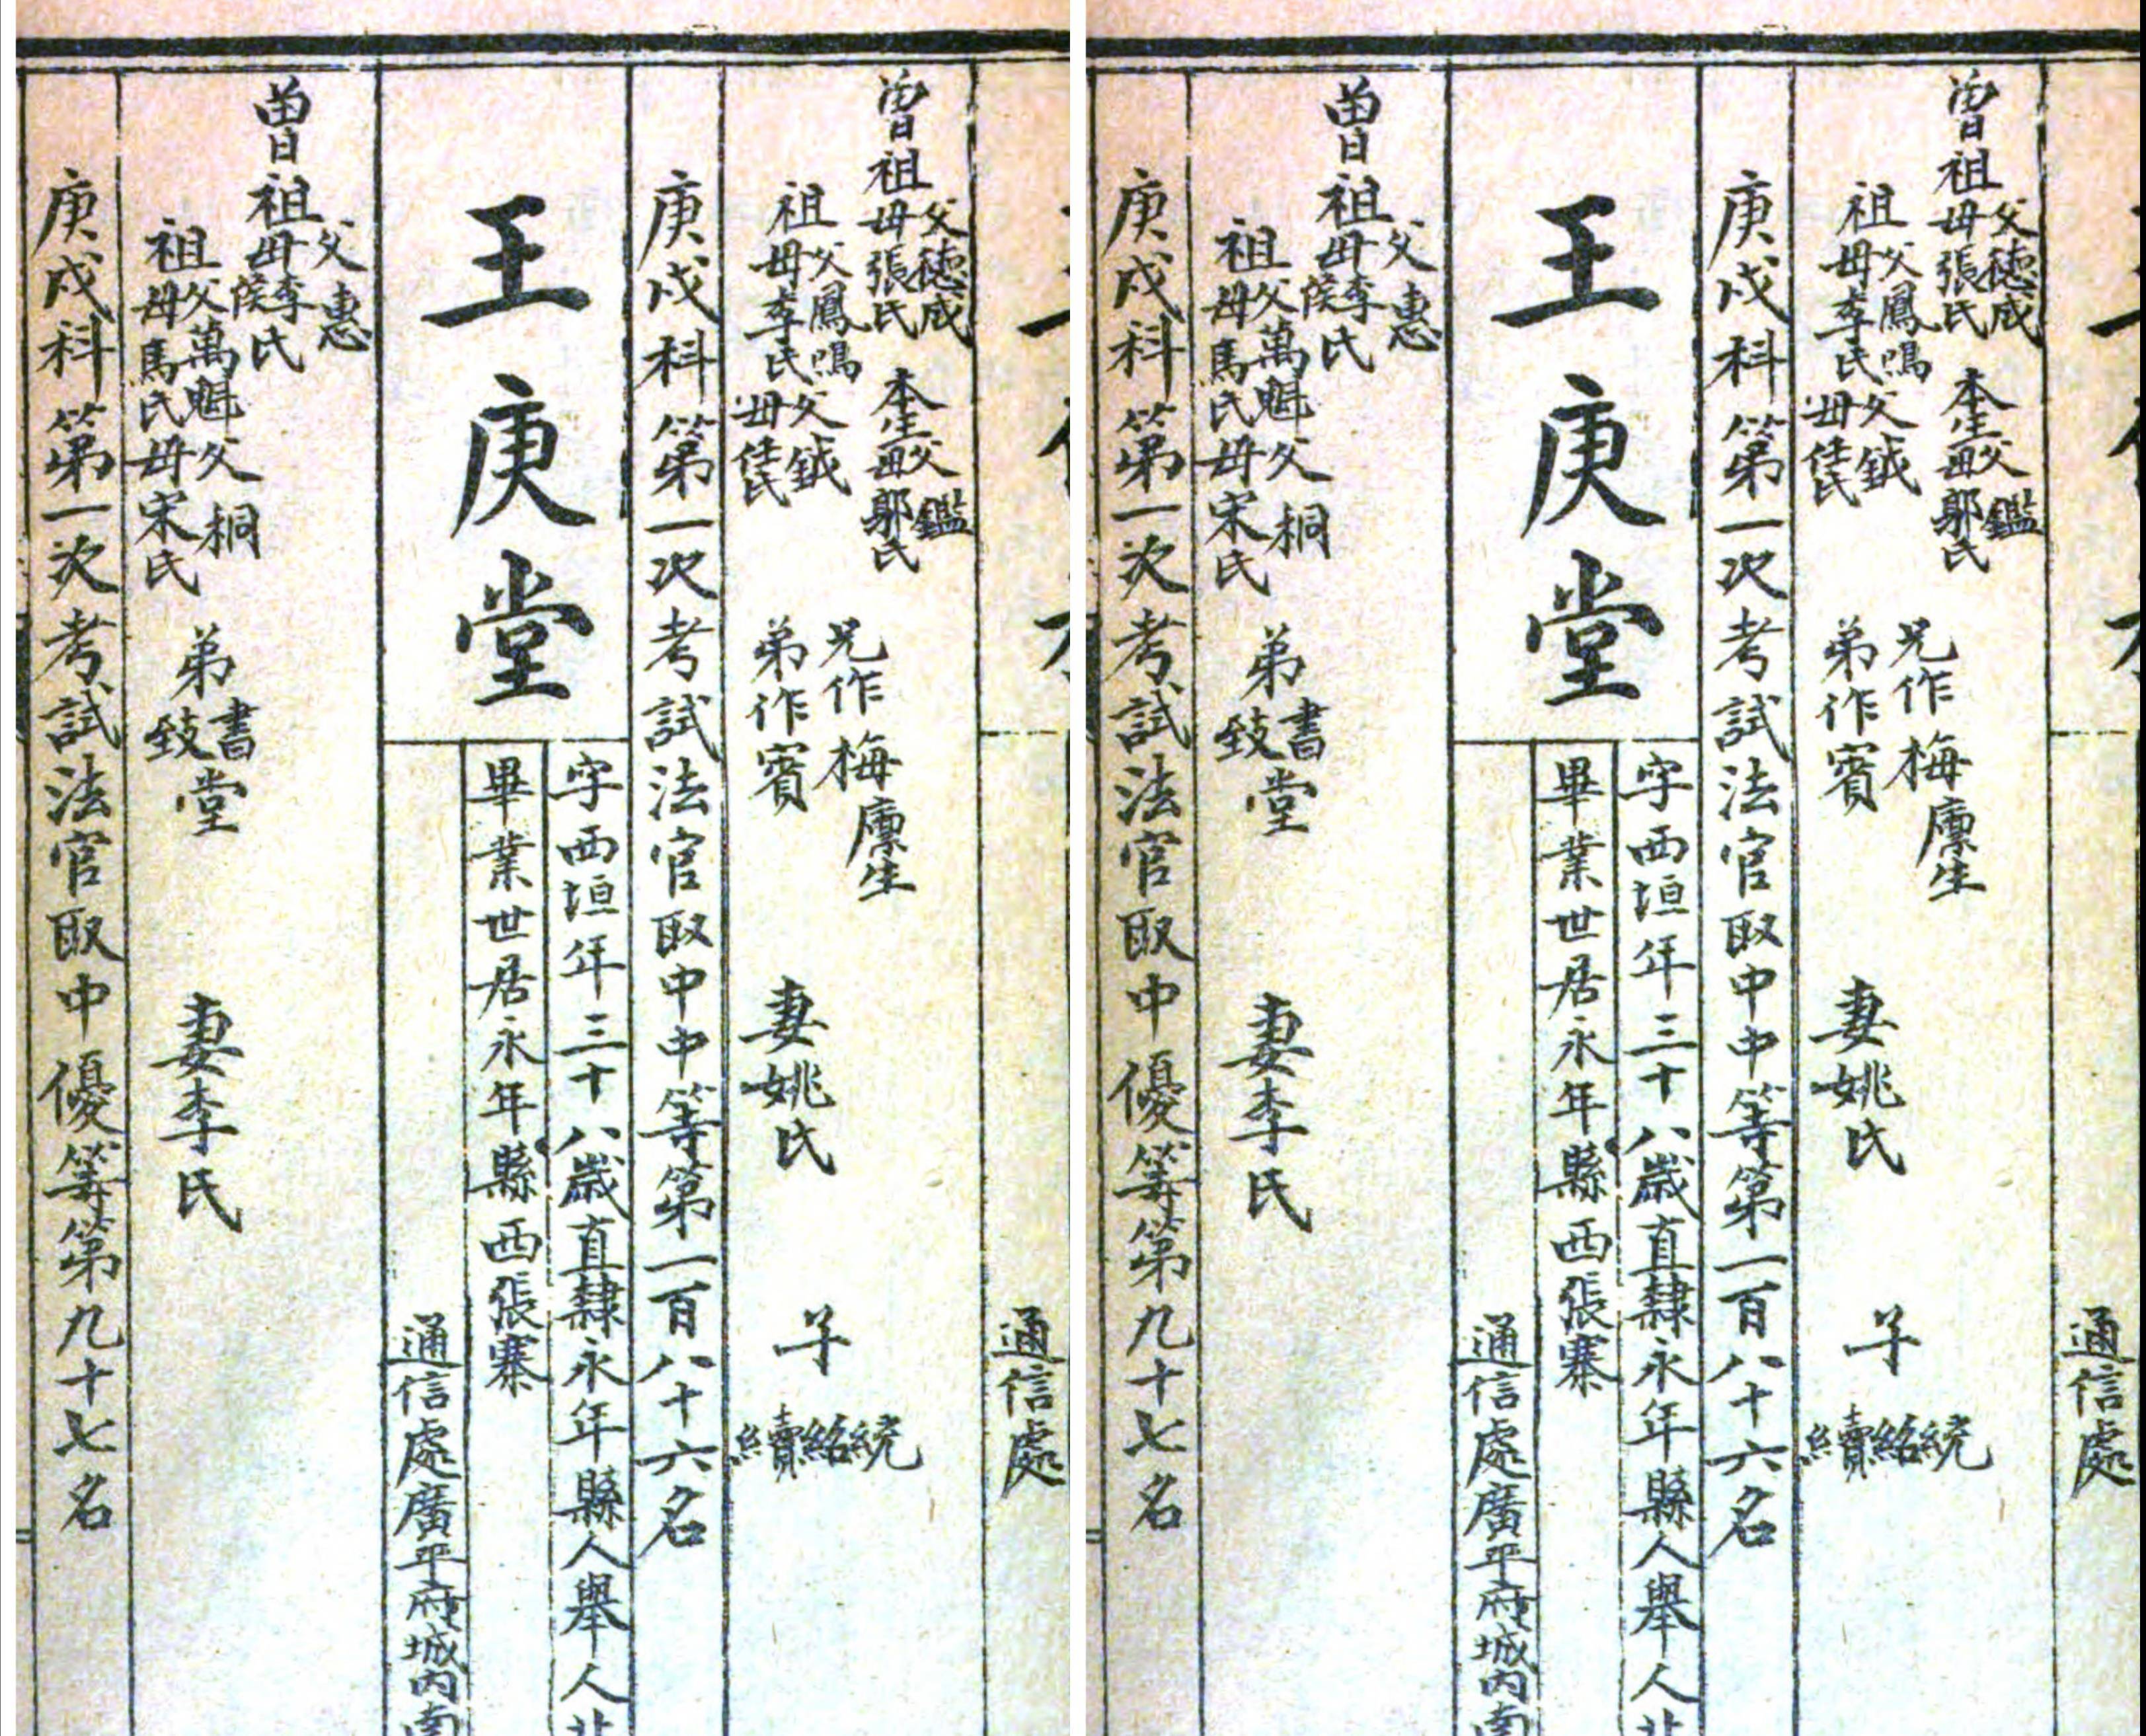 通信處
曾祖
父德成
母張氏
本生
父鑑
母郭氏
祖
父鳳鳴
母李氏
父鉞
母
氏
兄作梅廩生
弟作賓
妻姚氏
子
統
紹
續
庚戌科第一次考試法官取中中等第一百八十六名
王庚堂
字西垣年三十八歲直隸永年縣人舉人北
畢業世居永年縣西張寨
通信處廣平府城內南
曾祖
父惠
母李侯氏
祖
父萬魁
母馬氏
父桐
母宋氏
弟
書
致
堂
妻李氏
庚戌科第一次考試法官取中優等第九十七名
通信處
曾祖
父德成
母張氏
本生
父鑑
母郭氏
祖
父鳳鳴
母李氏
父鉞
母
氏
兄作梅廩生
弟作賓
妻姚氏
子
統
紹
續
庚戌科第一次考試法官取中中等第一百八十六名
王庚堂
字西垣年三十八歲直隸永年縣人舉人北
畢業世居永年縣西張寨
通信處廣平府城內南
曾祖
父惠
母李侯氏
祖
父萬魁
母馬氏
父桐
母宋氏
弟
書
致
堂
妻李氏
庚戌科第一次考試法官取中優等第九十七名